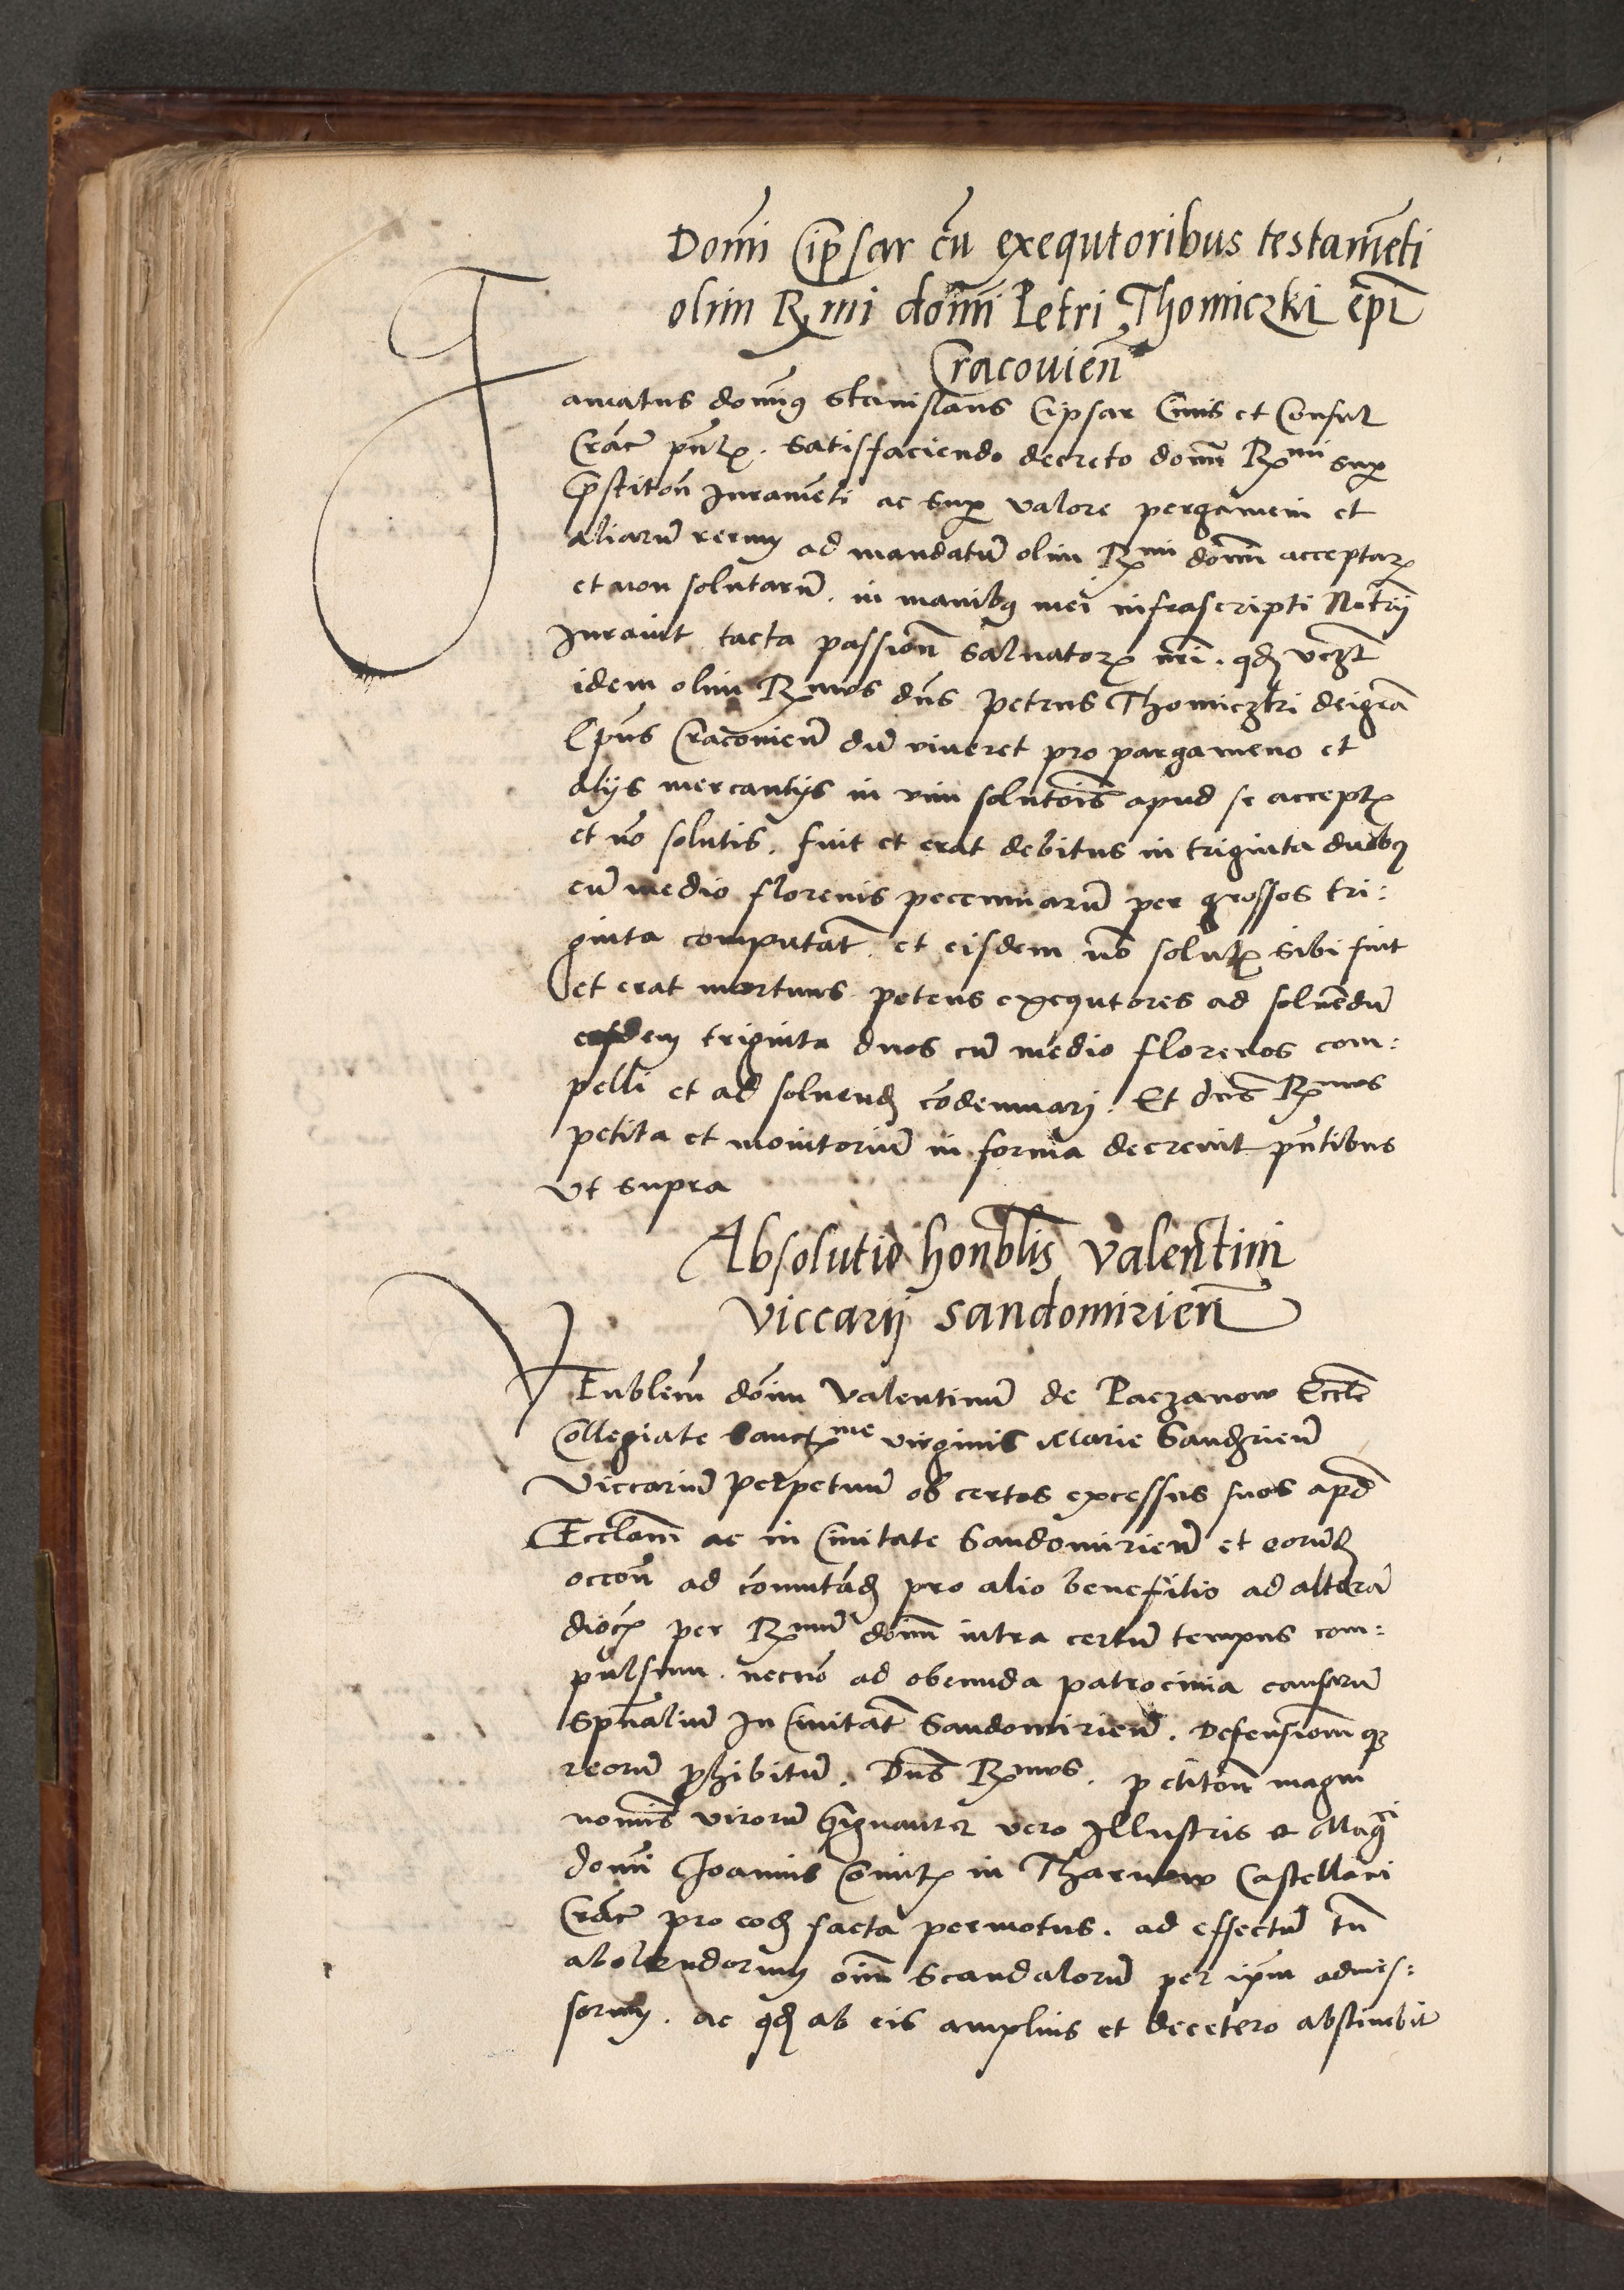 Domi Cipsar cu exequtoribus testameti
olim Rmi domi Petri Thomiczki epi
Cracouien
Famatus domis Stanislaus Cipsar Ciuis et Consul
Crac pntx. Satisfaciendo decreto domi Rxmi sup
prestiton Iuramenti ac sup valore pergameni et
aliaru rerum ad mandatu olim Rxmi domi acceptarx
et non solutaru. in manibus mei infrascripti Notrij
Iurauit tacta passion Saluatorx nri. qd vczt
idem olim Rxmus dns Petrus Thomiczki dei gra
Epus Cracouien du viueret pro pargameno et
alijs mercantijs in vim solutois apud se acceptx
et no solutis. fuit et erat debitus in triginta duobus
cu medio florenis peccuniaru per grossos tri:
ginta computat et eisdem no solutx sibi fuit
et erat mortuus petens exequtores ad soluendu
eosdem triginta duos cu medio florenos com:
pelli et ad soluend condemnari. Et dns Rxmus
petita et monitoriu in forma decreuit pntibus
vt supra
Absolutio honblis Valentini
Viccarij Sandomirien
VEnblem doim Valentinu de Paczanow Eccle
Collegiate Sanctxme virginis Marie Sandzrien
Viccariu perpetuu ob certos excessus suos apd
Ecclam ac in Ciuitate Sandomirien et eorund
occon ad comutad pro alio benefitio ad altera
diocx per Rxmu doim intra certu tempus com:
pulsum. necno ad obeunda patrocinia causaru
Spualiu In Ciuitat Sandomirien. Defensiom qz
reoru phibitu. Dns Rxmus. petiton magni
nomis viroru signanter vero Illustris et Magci
domi Joannis Comitx in Tharnow Castellani
Crac pro eod facta permotus. ad effectu tn
abolendorum oim Scandaloru per ipm admis:
sorum. ac qd ab eis amplius et decetero abstinebit